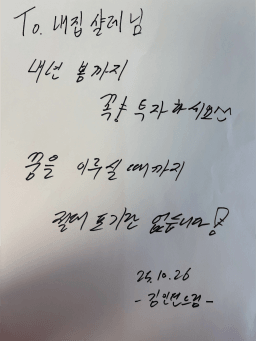 To. 내집 샬레님
내년 봄까지
꼭 투자 하시오산
꿈을 이루실 때까지
절대 포기란 없습니다!
25.10.26
- 김인선드림 -